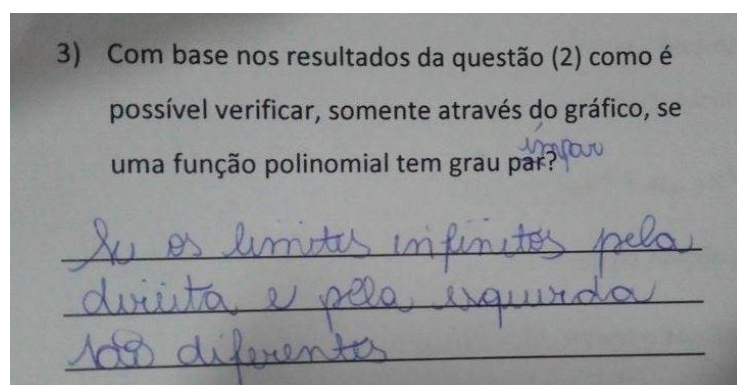 3) Com base nos resultados da questão (2) como é
possível verificar, somente através do gráfico, se
ímpar
uma função polinomial tem grau par?
Se os limites infinitos pela
direita e pela esquerda
são diferentes